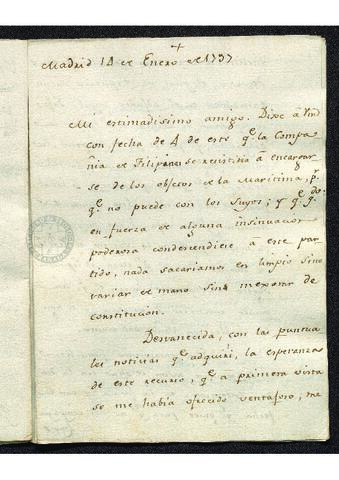 +
Madrid 14 de Enero de 1797
Mi estimadisimo amigo. Dixe à Vmd
con fecha de 4 de este qe. la Compa
ñia de Filipinas se resistiria à encargar
se de los objetos de la Maritima, pr.
qe. no puede con los suyos; y qe. qdo.
en fuerza de alguna insinuacion
poderosa condescendiese à este par
tido, nada sacariamos en limpio sino
variar de mano sin mejorar de
constitucion.
Desvanecida, con las puntua
les noticias qe. adquiri, la esperanza
de este recurso, qe. à primera vista
se me habia ofrecido ventajoso, me